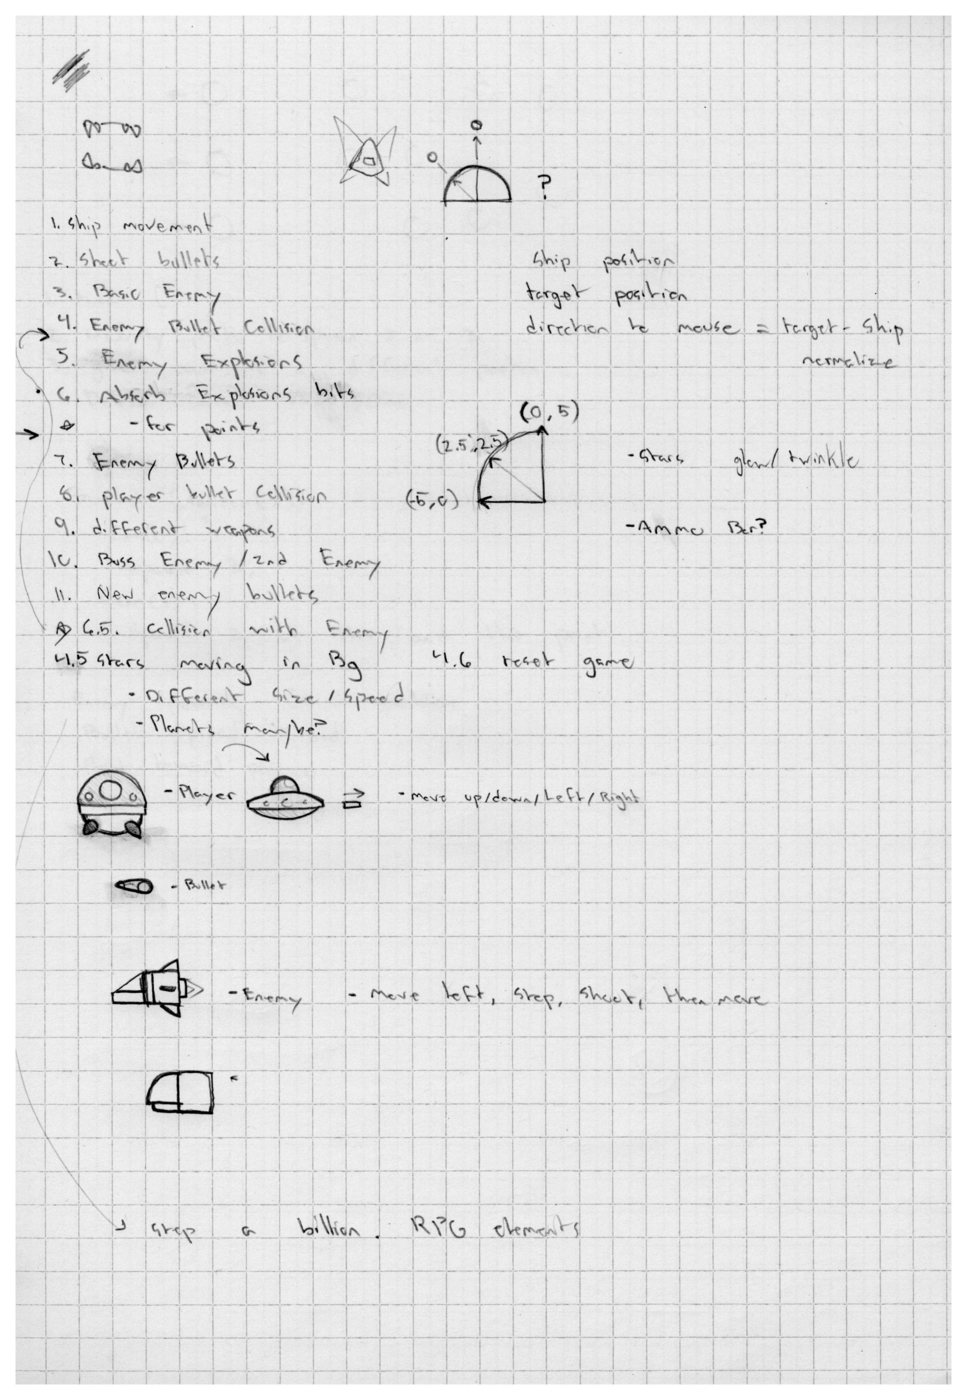 ?
1. Ship movement
2. Shoot bullets
Ship position
3. Basic Enemy
target position
4. Enemy Bullet Collision
direction to mouse = target - ship
normalize
5. Enemy Explosions
6. Absorb Explosions bits
- for points
(0, 5)
(2.5, 2.5)
7. Enemy Bullets
- Stars glow/twinkle
8. player bullet Collision
(-5, 0)
9. different weapons
- Ammo Bar?
10. Boss Enemy / 2nd Enemy
11. New enemy bullets
6.5. Collision with Enemy
4.5 Stars moving in Bg
4.6 reset game
- Different Size / Speed
- Planets maybe?
- Player
- move up/down/Left/Right
- Bullet
- Enemy - move left, stop, shoot, then move
step a billion. RPG elements